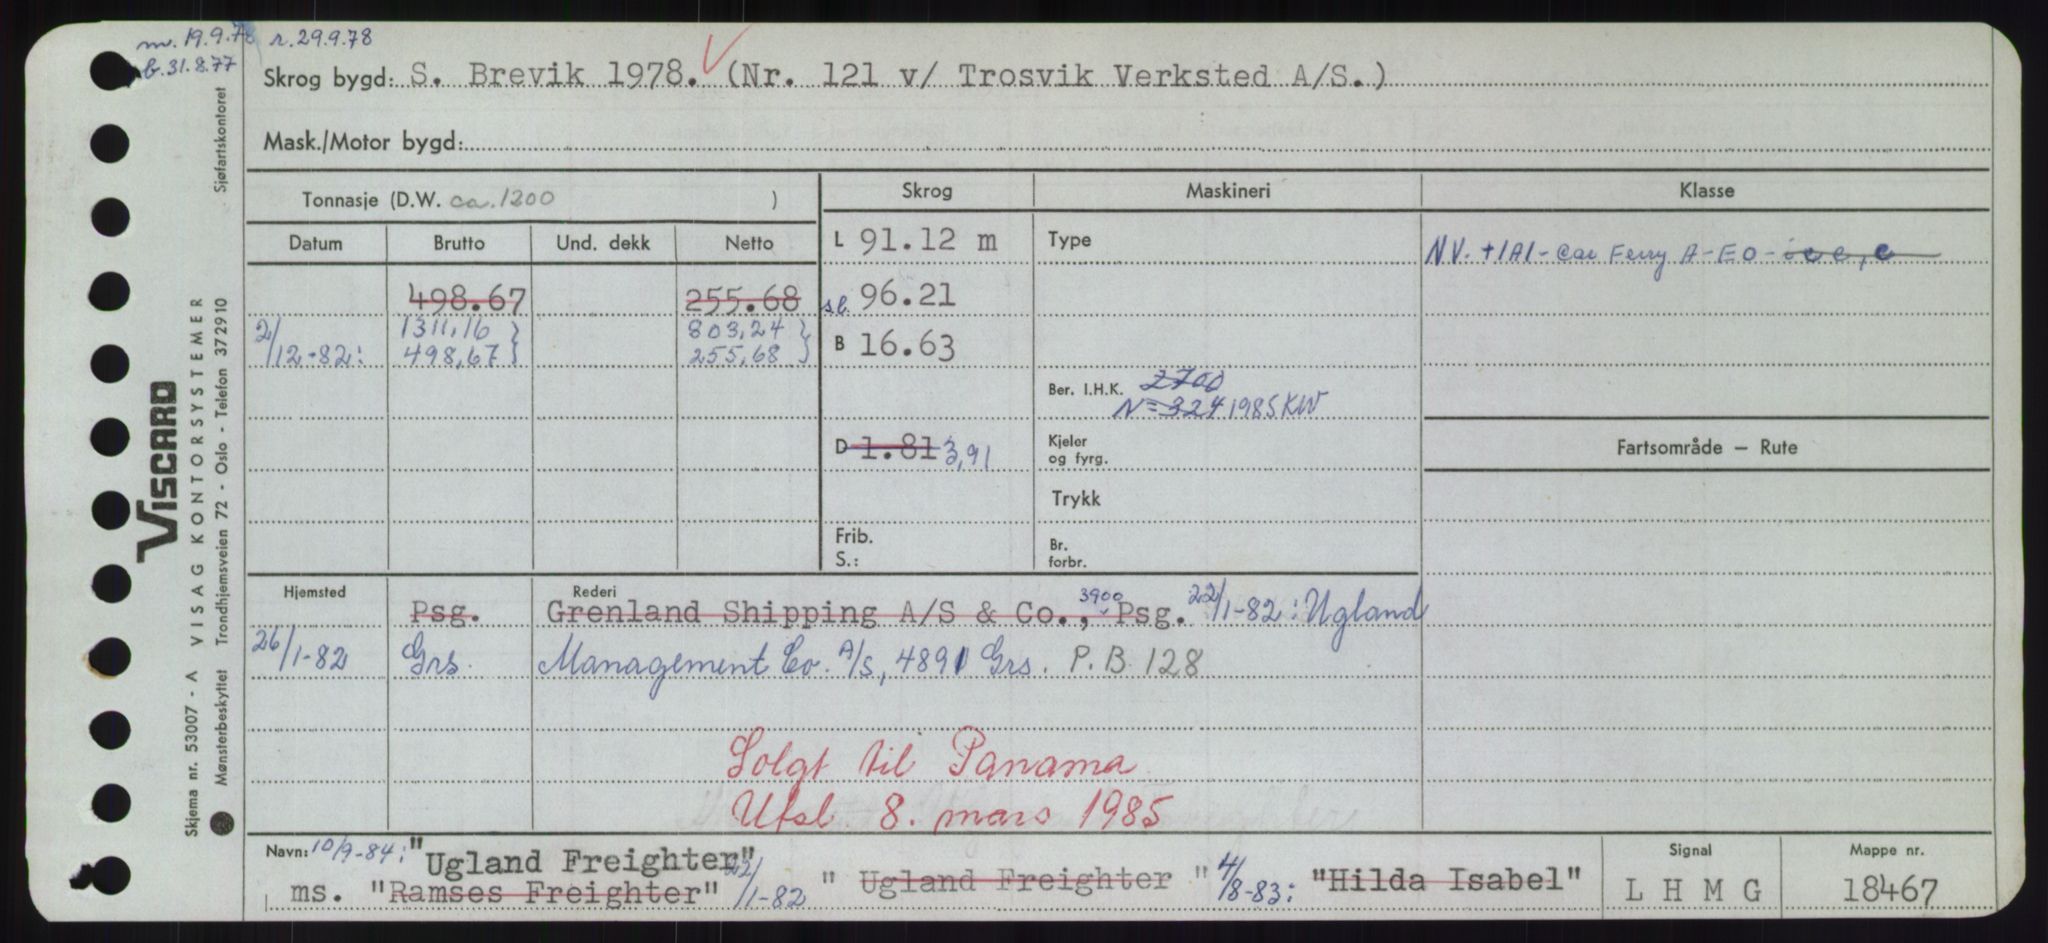 m. 19.9.78 r. 29.9.78
b. 31.8.77
Skrog bygd: S. Brevik 1978. (Nr. 121 v/ Trosvik Verksted A/S.)
Mask./Motor bygd:
Tonnasje (D.W. ca. 1200 )
Skrog Maskineri Klasse
Datum Brutto Und. dekk Netto
L 91.12 m
Type
NV. +1A1- Car Ferry A-EO- ice, c
498.67 255.68
s.b. 96.21
2/12-82: 1311,16 } 803,24 }
498,67 } 255,68 }
B 16.63
Ber. I.H.K. 2700
N=324 1985 KW
D 1.81 3,91
Kjeler
og fyrg.
Fartsområde — Rute
Trykk
Frib.
S.:
Br.
forbr.
Hjemsted Rederi
Psg. Grenland Shipping A/S & Co., 3900 Psg. 22/1-82: Ugland
26/1-82 Grs. Management Co. A/S, 4891 Grs. P.B. 128
Solgt til Panama
Utsl. 8. mars 1985
Navn: 10/9-84: "Ugland Freighter"
ms. "Ramses Freighter" 22/1-82 " Ugland Freighter " 4/8-83: "Hilda Isabel"
Signal
L H M G
Mappe nr.
18467
VISCARD
Skjema nr. 53007 - A VISAG KONTORSYSTEMER
Mønsterbeskyttet Trondhjemsveien 72 - Oslo - Telefon 372910 Sjøfartskontoret